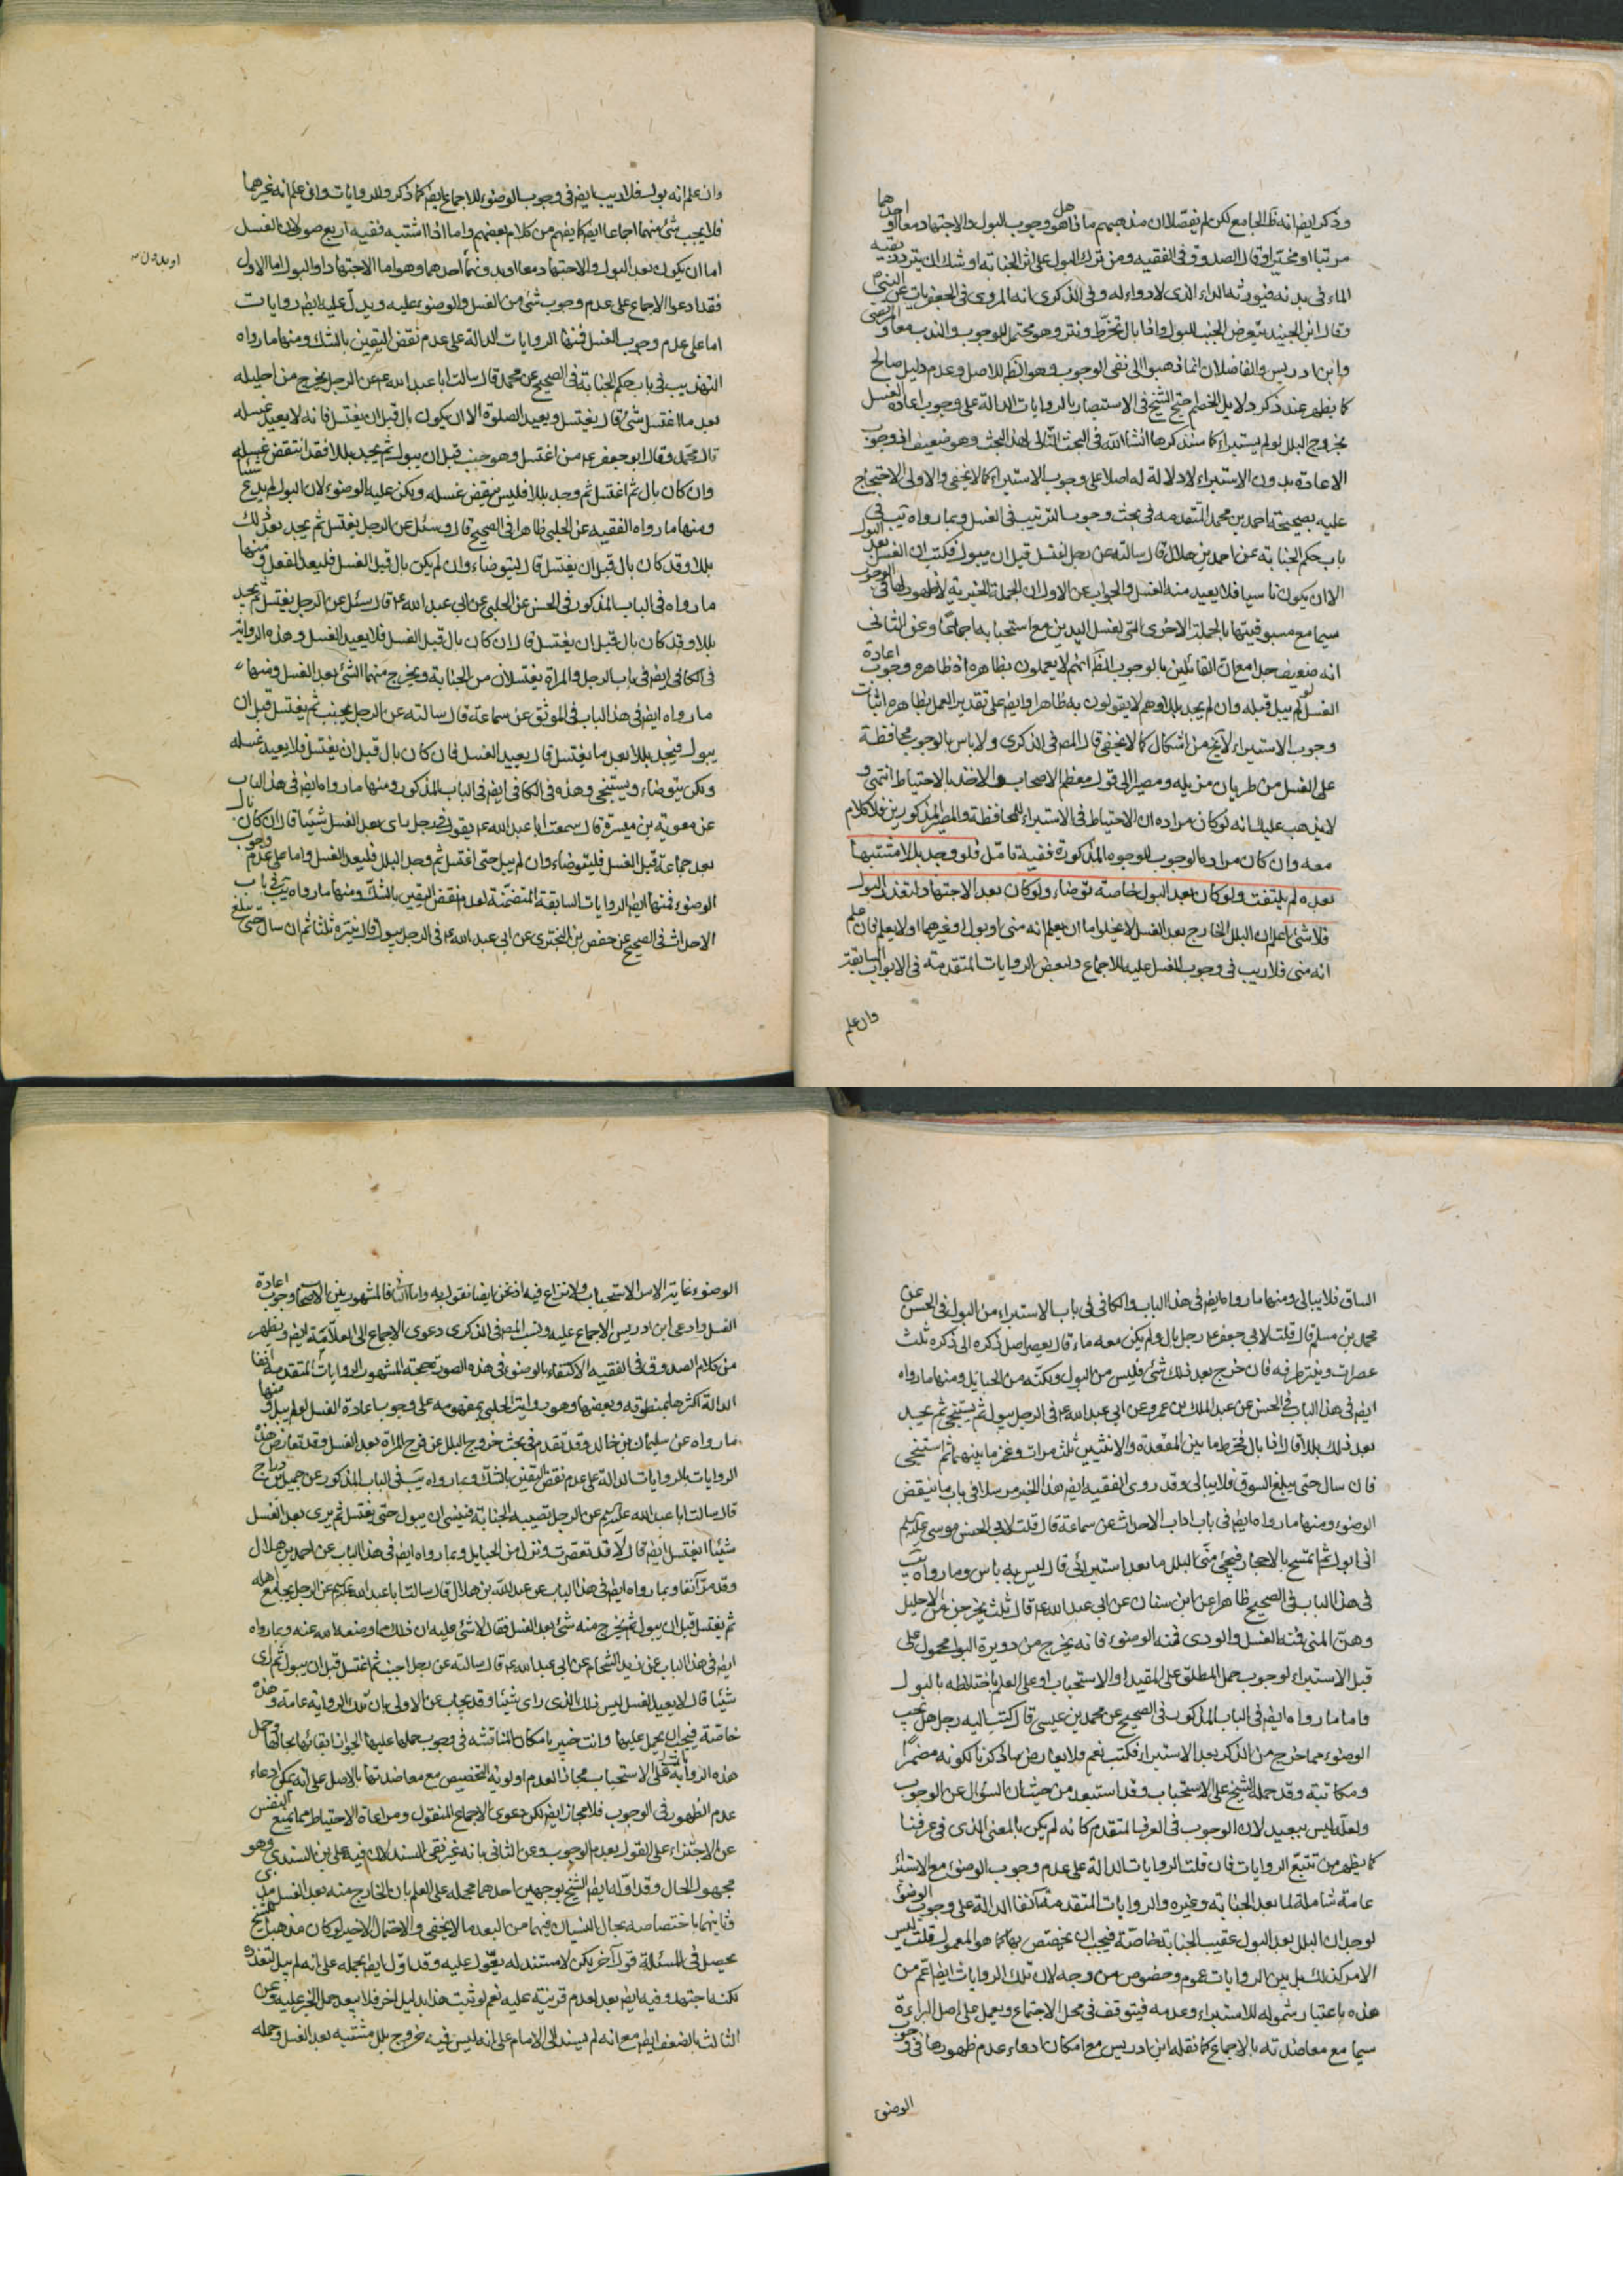 وذكر ايضا انه ظ الجامع لكن لم يفصلا ان مذهبهم ماذا هل هو وجوب البول والاجتهاد معا او احدهما
مرتبا او مخيرا وقال الصدوق في الفقيه ومن ترك البول على اثر الجنابة اوشك ان يتردد بقية
الماء في بدنه فيورثه الداء الذي لا دواء له وفي الذكرى انه المروي في الجعفريات عن النبي ص
وقال ابن الجنيد يتعرض الجنب للبول واذا بال تخرط ونتر وهو محتمل للوجوب والندب معا والمرتضى
وابن ادريس والفاضلان انما ذهبوا الى نفي الوجوب وهو الظ للاصل وعدم دليل صالح
كما يظهر عند ذكر دلايل الخصم احتج الشيخ في الاستبصار بالروايات الدالة على وجوب اعادة الغسل
بخروج البلل لو لم يستبراء كما سنذكرها انشا الله في البحث التالي لهذا البحث وهو ضعيف اذ وجوب
الاعادة بدون الاستبراء لا دلالة له اصلا على وجوب الاستبراء كما لا يخفى والاولى الاحتجاج
عليه بصحيحة احمد بن محمد المتقدمة في بحث وجوب الترتيب في الغسل وبما رواه يب في
باب حكم الجنابة عن احمد بن هلال قال سالته عن رجل اغتسل قبل ان يبول فكتب ان الغسل بعد البول
الا ان يكون ناسيا فلا يعيد منه الغسل والجواب عن الاول ان الجملة الخبرية لا ظهور لها في الوجوب
سيما مع مسبوقيتها بالجملة الاخرى التي لغسل اليدين مع استحبابه اجماعا وعن الثاني
انه ضعيف جدا مع ان القائلين بالوجوب الظ انهم لا يعملون بظاهره اذ ظاهره وجوب اعادة
الغسل لو لم يبل قبله وان لم يجد بللا وهم لا يقولون به ظاهرا وايضا على تقدير العمل بظاهره اثبات
وجوب الاستبراء لا يخ من اشكال كما لا يخفى قال المصر في الذكرى ولا باس بالوجوب محافظة
على الغسل من طريان مزيله ومصيرا الى قول معظم الاصحاب والاخذ بالاحتياط انتهى و
لا يذهب عليك انه لو كان مراده ان الاحتياط في الاستبراء للمحافظة والمصير المذكورين فلا كلام
معه وان كان مراده الوجوب للوجوه المذكورة ففيه تامل فلو وجد بللا مشتبها
بعده لم يلتفت ولو كان بعد البول خاصة توضاء ولو كان بعد الاجتهاد لتعذر البول
فلا شئ اعلم ان البلل الخارج بعد الغسل لا يخلو اما ان يعلم انه مني او بول او غيرهما او لا يعلم فان علم
انه مني فلا ريب في وجوب الغسل عليه للاجماع ولبعض الروايات المتقدمة في الابواب السابقة
وان علم
وان علم انه بول فلا ريب ايضا في وجوب الوضوء للاجماع ايضا كما ذكر وللروايات وان علم انه غيرهما
فلا يجب شئ منهما اجماعا ايضا كما يفهم من كلام بعضهم واما اذا اشتبه ففيه اربع صور لان الغسل
اما ان يكون بعد البول والاجتهاد معا او بدونهما احدهما وهو اما الاجتهاد او البول اما الاول
او بدون
فقد ادعوا الاجماع على عدم وجوب شئ من الغسل والوضوء عليه ويدل عليه ايضا روايات
اما على عدم وجوب الغسل فمنها الروايات الدالة على عدم نقض اليقين بالشك ومنها ما رواه
التهذيب في باب حكم الجنابة في الصحيح عن محمد قال سالت ابا عبد الله ع عن الرجل يخرج من احليله
بعد ما اغتسل شئ قال يغتسل ويعيد الصلوة الا ان يكون بال قبل ان يغتسل فانه لا يعيد غسله
قال محمد وقال ابو جعفر ع من اغتسل وهو جنب قبل ان يبول ثم يجد بللا فقد انتقض غسله
وان كان بال ثم اغتسل ثم وجد بللا فليس ينقض غسله ولكن عليه الوضوء لان البول لم يدع شيئا
ومنها ما رواه الفقيه عن الحلبي ظاهرا في الصحيح قال وسئل عن الرجل يغتسل ثم يجد بعد ذلك
بللا وقد كان بال قبل ان يغتسل قال يتوضاء وان لم يكن بال قبل الغسل فليعد الغسل ومنها
ما رواه في الباب المذكور في الحسن عن الحلبي عن ابي عبد الله ع قال سئل عن الرجل يغتسل ثم يجد
بللا وقد كان بال قبل ان يغتسل قال ان كان بال قبل الغسل فلا يعيد الغسل وهذه الرواية
في الكافي ايضا في باب الرجل والمراة يغتسلان من الجنابة ويخرج منهما الشئ بعد الغسل ومنها
ما رواه ايضا في هذا الباب في الموثق عن سماعة قال سالته عن الرجل يجنب ثم يغتسل قبل ان
يبول فيجد بللا بعد ما يغتسل قال يعيد الغسل فان كان بال قبل ان يغتسل فلا يعيد غسله
ولكن يتوضاء ويستنجي وهذه في الكافي ايضا في الباب المذكور ومنها ما رواه ايضا في هذا الباب
عن معوية بن ميسرة قال سمعت ابا عبد الله ع يقول في رجل راى بعد الغسل شيئا قال ان كان بال
بعد جماعه قبل الغسل فليتوضاء وان لم يبل حتى اغتسل ثم وجد البلل فليعد الغسل واما على عدم وجوب
الوضوء فمنها ايضا الروايات السابقة المتضمنة لعدم نقض اليقين بالشك ومنها ما رواه يب في باب
الاحداث في الصحيح عن حفص بن البختري عن ابي عبد الله ع في الرجل يبول قال ينتره ثلثا ثم ان سال حتى يبلغ
الساق فلا يبالي ومنها ما رواه ايضا في هذا الباب والكافي في باب الاستبراء من البول في الحسن عن
محمد بن مسلم قال قلت لابي جعفر ع رجل بال ولم يكن معه ماء قال يعصر اصل ذكره الى ذكره ثلث
عصرات وينتر طرفه فان خرج بعد ذلك شئ فليس من البول ولكنه من الحبايل ومنها ما رواه
ايضا في هذا الباب في الحسن عن عبد الملك بن عمرو عن ابي عبد الله ع في الرجل يبول ثم يستنجي ثم يجد
بعد ذلك بللا قال اذا بال فخرط ما بين المقعدة والانثيين ثلث مرات وغمز ما بينهما ثم استنجى
فان سال حتى يبلغ السوق فلا يبالي وقد روى الفقيه ايضا هذا الخبر مرسلا في باب ما ينقض
الوضوء ومنها ما رواه ايضا في باب اداب الاحداث عن سماعة قال قلت لابي الحسن موسى عليه السلم
اني ابول ثم اتمسح بالاحجار فيجئ مني البلل ما بعد استبرائي قال ليس به باس وما رواه يب
في هذا الباب في الصحيح ظاهرا عن ابن سنان عن ابي عبد الله ع قال ثلث يخرجن من الاحليل
وهن المني فمنه الغسل والودي فمنه الوضوء فانه يخرج من دريرة البول محمول على
قبل الاستبراء لوجوب حمل المطلق على المقيد او الاستحباب او على العلم باختلاطه بالبول
واما ما رواه ايضا في الباب المذكور في الصحيح عن محمد بن عيسى قال كتب اليه رجل هل يجب
الوضوء مما خرج من الذكر بعد الاستبراء فكتب نعم فلا يعارض ما ذكرنا لكونه مضمرا
ومكاتبة وقد حمله الشيخ على الاستحباب وقد استبعد من حيث ان السؤال عن الوجوب
ولعله ليس ببعيد لان الوجوب في العرف المتقدم كانه لم يكن بالمعنى الذي في عرفنا
كما يظهر من تتبع الروايات فان قلت الروايات الدالة على عدم وجوب الوضوء مع الاستبراء
عامة شاملة لما بعد الجنابة وغيره والروايات المتقدمة آنفا الدالة على وجوب الوضوء
لوجدان البلل بعد البول عقيب الجنابة خاصة فيجب ان يخصص بها كما هو المعمول قلت ليس
الامر كذلك بل بين الروايات عموم وخصوص من وجه لان تلك الروايات ايضا اعم من
هذه باعتبار شموله للاستبراء وعدمه فيتوقف في محل الاجتماع ويعمل على اصل البراءة
سيما مع معاضدته بالاجماع كما نقله ابن ادريس مع امكان ادعاء عدم ظهورها في وجوب
الوضوء
الوضوء غاية الامر الاستحباب ولا نزاع فيه اذ نحن ايضا نقول به واما الثاني فالمشهور بين الاصحاب وجوب اعادة
الغسل وادعى ابن ادريس الاجماع عليه ونسب المصر في الذكرى دعوى الاجماع الى العلامة ايضا ويظهر
من كلام الصدوق في الفقيه الاكتفاء بالوضوء في هذه الصورة حجة المشهور الروايات المتقدمة آنفا
الدالة اكثرها بمنطوقه وبعضها وهو رواية الحلبي بمفهومه على وجوب اعادة الغسل لو لم يبل ومنها
ما رواه عن سليمان بن خالد وقد تقدم في بحث خروج البلل عن فرج المراة بعد الغسل وقد تعارض هذه
الروايات بالروايات الدالة على عدم نقض اليقين بالشك وبما رواه يب في الباب المذكور عن جميل بن دراج
قال سالت ابا عبد الله عليه السلم عن الرجل تصيبه الجنابة فينسى ان يبول حتى يغتسل ثم يرى بعد الغسل
شيئا ايغتسل ايضا قال لا قد تعصرت ونزل من الحبايل وبما رواه ايضا في هذا الباب عن احمد بن هلال
وقد مر آنفا وبما رواه ايضا في هذا الباب عن عبد الله بن هلال قال سالت ابا عبد الله عليه السلم عن الرجل يجامع اهله
ثم يغتسل قبل ان يبول ثم يخرج منه شئ بعد الغسل فقال لا شئ عليه ان ذلك مما وضعه الله عنه وبما رواه
ايضا في هذا الباب عن زيد الشحام عن ابي عبد الله ع قال سالته عن رجل اجنب ثم اغتسل قبل ان يبول ثم راى
شيئا قال لا يعيد الغسل ليس ذلك الذي راى شيئا وقد يجاب عن الاولى بان تلك الرواية عامة وهذه
خاصة فيجب ان يحمل عليها وانت خبير بامكان المناقشة في وجوب حملها عليها لجواز ابقائها بحالها وحمل
هذه الرواية على الاستحباب مجازا لعدم اولوية التخصيص مع معاضدتها بالاصل على انه يمكن ادعاء
عدم الظهور في الوجوب فلا مجاز ايضا لكن دعوى الاجماع المنقول ومراعاة الاحتياط مما يمنع النفس
عن الاجتراء على القول بعدم الوجوب وعن الثاني بانه غير نقي السند لان فيه علي بن السندي وهو
مجهول الحال وقد اوله ايضا الشيخ بوجهين احدهما حمله على العلم بان الخارج منه بعد الغسل مذي
وثانيهما باختصاصه بحال النسيان فيهما من البعد ما لا يخفى والاحتمال الاخير لو كان مذهبا للشيخ
يحصل في المسئلة قول آخر لكن لا مستند له يعول عليه وقد اول ايضا بحمله على انه لم يبل لتعذره
لكنه اجتهد وفيه ايضا بعد لعدم قرينة عليه نعم لو ثبت هذا بدليل اخر فلا يبعد حمل الخبر عليه وعن
الثالث بالضعف ايضا مع انه لم يسند الى الامام على انه ليس فيه خروج بلل مشتبه بعد الغسل وحمله